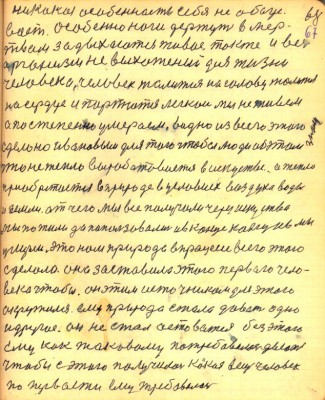 никакая особенность себя не обога-
вает. особенно ноги держут в мер-
твам задыхаются такое токте и весь
организм не выхоженый для жизни
человека, человек жалится на голову жалится
на сердце и портятся легкои мы не живем
а постепенно умераем, видно из всего этого
сделано и основан для того чтобы люди об этом
то не тепло вырабатовается в искуство. а тепло
приобретается в природе в условиях воздуха воды
и земли. от чего мы все получали через искуства
мы потили до напользовали и в конце концов мы
умерли. это нам природа в працесе всего этого
сделала она заставила этого первого чело-
века чтобы. он этим источником для этого
окружился. ему природа стала давать одно
и другое. он не стал оставатся без этого
ему как таковому потребовалось делать
чтобы с этого получилась какая вещ человек
по первости ему требовалось
67